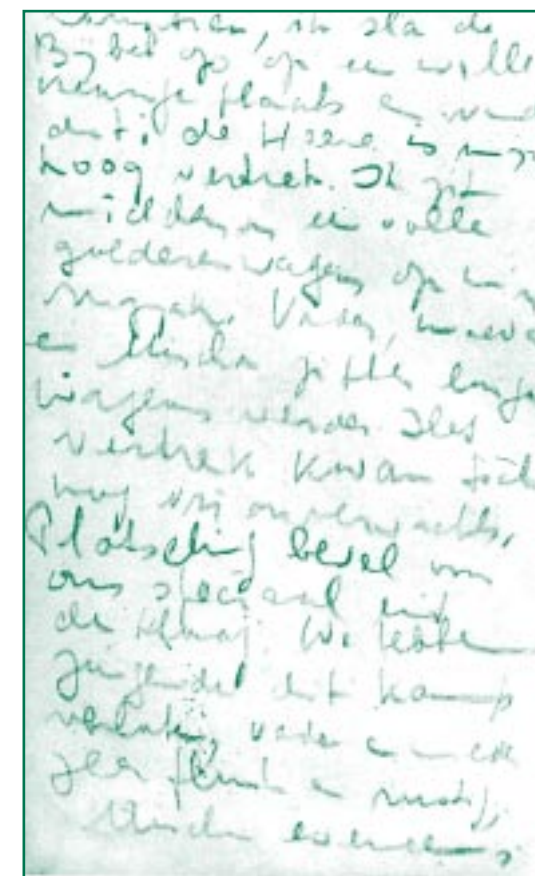 ik sla de
Bijbel op op een wille
keurige plaats en vind
dit: de Heere is mijn
hoog vertrek. Ik zit
midden in een volle
goederenwagen op mijn
Vader, moeder
en Mischa zitten enige
wagens verder. Het
vertrek kwam toch
nog vrij onverwachts,
Plotseling bevel voor
ons speciaal uit
den Haag. We hebben
zingende dit kamp
verlaten, vader en moeder
zeer flink en rustig,
Mischa eveneens